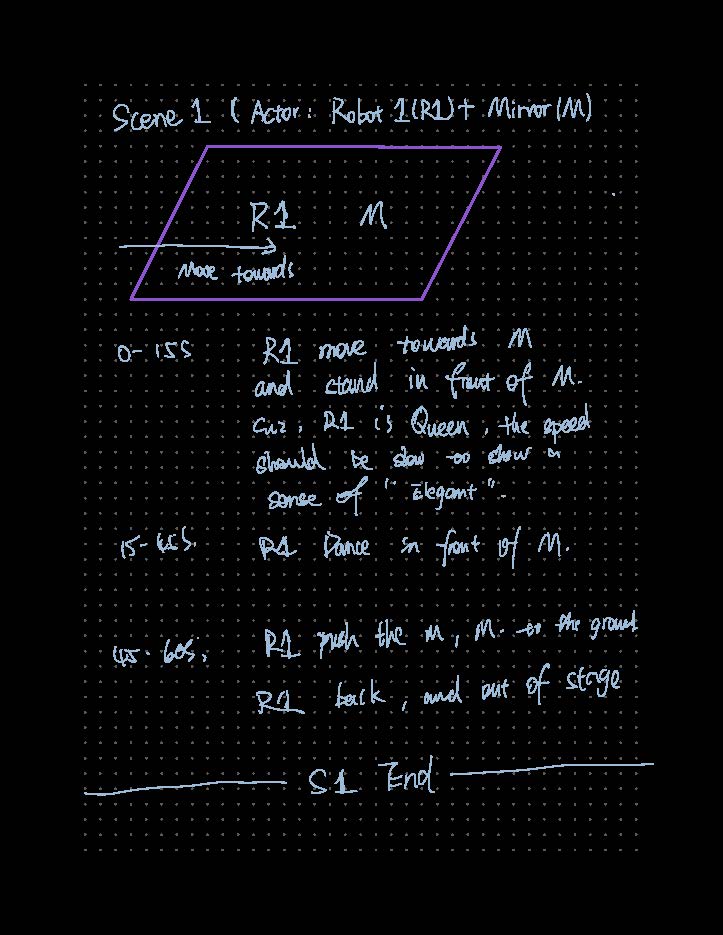 Scene 1 ( Actor: Robot 1(R1) + Mirror(M)
R1 M
Move towards
0-15S R1 move towards M
and stand in front of M.
Cuz, R1 is Queen, the speed
should be slow to show a
sense of "Elegant".
15-45S. R1 Dance in front of M.
45-60S, R1 push the M, M. to the ground
R1 back, and out of stage
S1 End